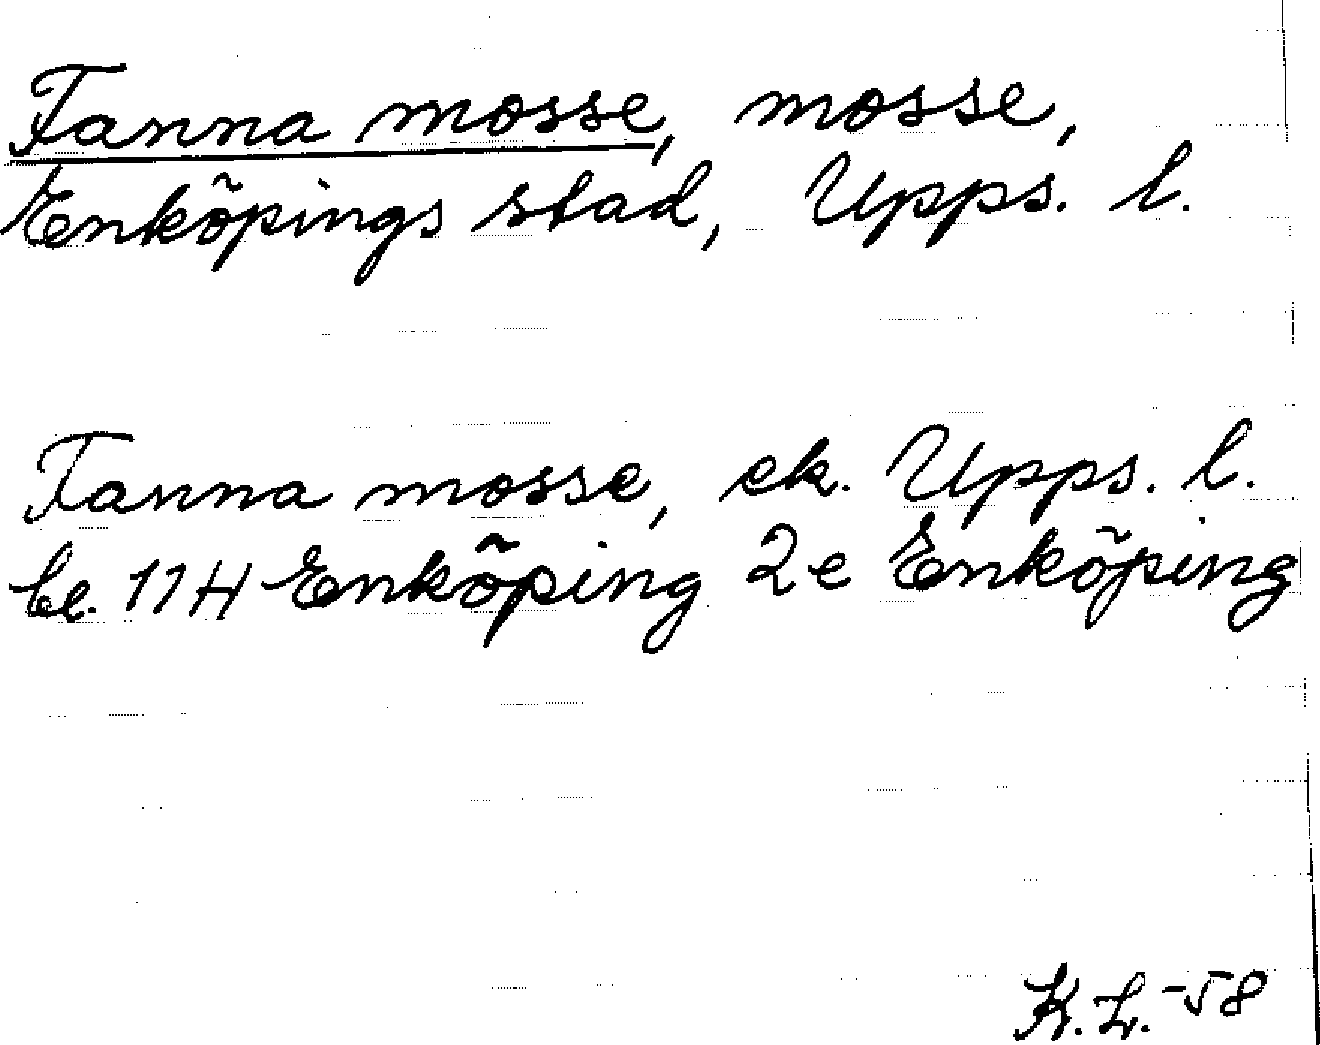 Fanna mosse, mosse,
Enköpings stad, Upps. l.
Fanna mosse, ek. Upps. l.
bl. 11H Enköping 2e Enköping
K.L. -58